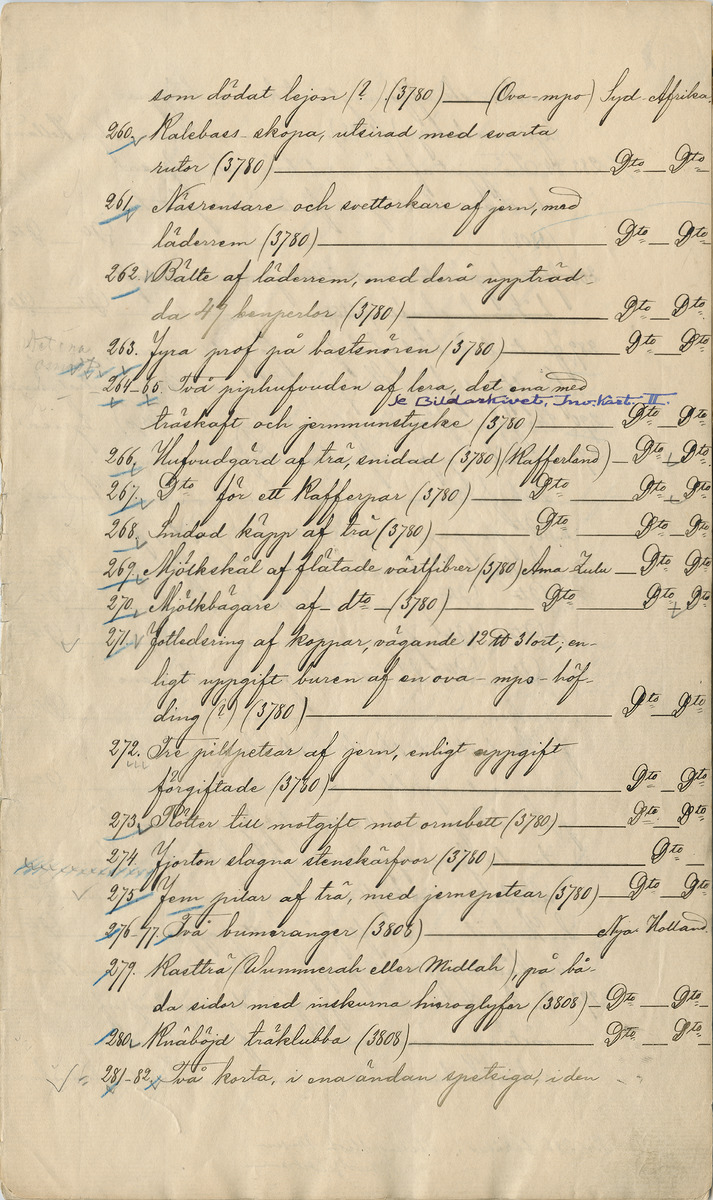 som dödat lejon (?) (3780) — (Ova-mpo) Syd-Afrika.
260. Kalebass-skopa, utsirad med svarta
rutor (3780) — Dto — Dto
261. Näsrensare och svettorkare af jern, med
läderrem (3780) — Dto — Dto
262. Bälte af läderrem, med derå uppträd-
da 47 benperlor (3780) — Dto — Dto
263. Fyra prof på bastsnören (3780) — Dto Dto
264-65. Två piphufvuden af lera, det ena med
se Bildarkivet, Inv. Kart. II.
träskaft och jernmunstycke (3780) — Dto Dto
266. Hufvudgärd af trä, snidad (3780) (Kafferland) — Dto + Dto
267. Dto för ett Kafferpar (3780) — Dto — Dto + Dto
268. Snidad käpp af trä (3780) — Dto — Dto Dto
269. Mjölkskål af flätade växtfibrer (3780) Ama Zulu — Dto Dto
270. Mjölkbägare af — dto — (3780) — Dto — Dto + Dto
271. Fotledsring af koppar, vägande 12 ℔ 31 ort; en-
ligt uppgift buren af en ova-mpo-höf-
ding (?) (3780) — Dto — Dto
272. Tre pilspetsar af jern, enligt uppgift
förgiftade (3780) — Dto — Dto
273. Rötter till motgift mot ormbett (3780) — Dto Dto
274. Fjorton slagna stenskärfvor (3780) — Dto —
275. Fem pilar af trä, med jernspetsar (3780) — Dto — Dto
276-77. Två bumeranger (3808) — Nya Holland.
279. Kastträ (Wummerah eller Midlah), på bå-
da sidor med inskurna hieroglyfer (3808) — Dto — Dto
280. Knäböjd träklubba (3808) — Dto — Dto
281-82. Två korta, i ena ändan spetsiga, i den